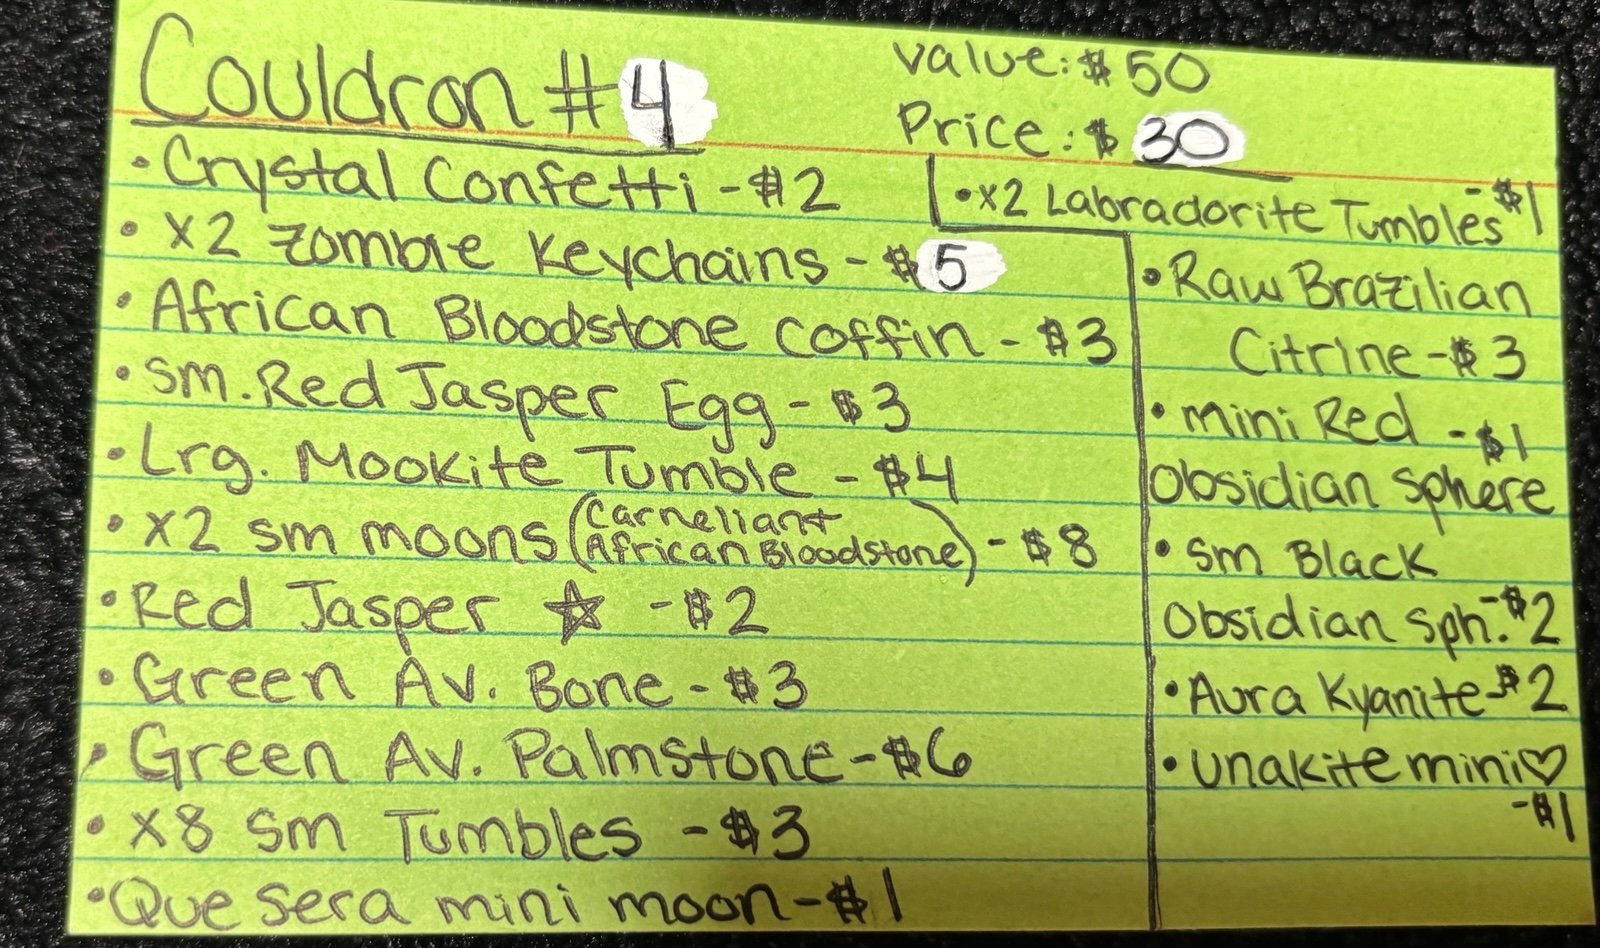 Couldron #4
value: $50
Price: $30
• Crystal Confetti - $2
• x2 Zombie Keychains - $5
• African Bloodstone Coffin - $3
• sm. Red Jasper Egg - $3
• Lrg. Mookite Tumble - $4
• x2 sm moons (Carnelian +
African Bloodstone) - $8
• Red Jasper ☆ - $2
• Green Av. Bone - $3
• Green Av. Palmstone - $6
• x8 sm Tumbles - $3
• Que sera mini moon - $1
• x2 Labradorite Tumbles - $1
• Raw Brazilian
Citrine - $3
• mini Red - $1
Obsidian Sphere
• sm Black
Obsidian Sph. - $2
• Aura Kyanite - $2
• unakite mini ♡
- $1